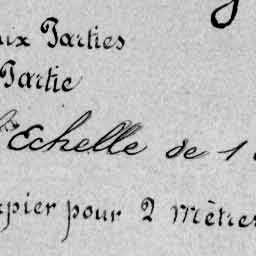 Parties
Partie
Echelle de 1
pour 2 Mètres